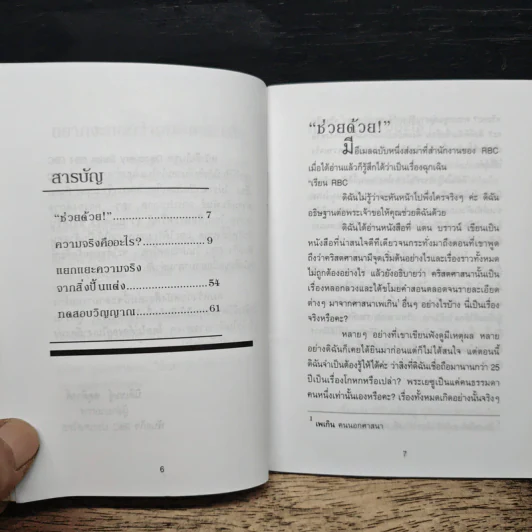 สารบัญ
"ช่วยด้วย!"............................ 7
ความจริงคืออะไร?................ 9
แยกแยะความจริง
จากสิ่งปั้นแต่ง.....................54
ทดสอบวิญญาณ..................61
6
"ช่วยด้วย!"
มีอีเมลฉบับหนึ่งส่งมาที่สำนักงานของ RBC
เมื่อได้อ่านแล้วก็รู้สึกได้ว่าเป็นเรื่องฉุกเฉิน
"เรียน RBC
ดิฉันไม่รู้ว่าจะหันหน้าไปพึ่งใครจริงๆ ค่ะ ดิฉัน
อธิษฐานต่อพระเจ้าขอให้คุณช่วยดิฉันด้วย
ดิฉันได้อ่านหนังสือที่ แดน บราวน์ เขียนเป็น
หนังสือที่น่าสนใจดีทีเดียวจนกระทั่งมาถึงตอนที่เขาพูด
ถึงว่าคริสตศาสนามีจุดเริ่มต้นอย่างไรและเรื่องราวทั้งหมด
ไม่ถูกต้องอย่างไร แล้วยังอธิบายว่า คริสตศาสนานั้นเป็น
เรื่องหลอกลวงและได้ขโมยคำสอนตลอดจนรายละเอียด
ต่างๆ มาจากศาสนาเพเกิน¹ อื่นๆ อย่างไรบ้าง นี่เป็นเรื่อง
จริงหรือคะ?
หลายๆ อย่างที่เขาเขียนฟังดูมีเหตุผล หลาย
อย่างดิฉันก็เคยได้ยินมาก่อนแต่ก็ไม่ได้สนใจ แต่ตอนนี้
ดิฉันจำเป็นต้องรู้ให้ได้ค่ะ ว่าสิ่งที่ดิฉันเชื่อถือมานานกว่า 25
ปีเป็นเรื่องโกหกหรือเปล่า? พระเยซูเป็นแค่คนธรรมดา
คนหนึ่งเท่านั้นเองหรือคะ? เรื่องทั้งหมดเกิดอย่างนั้นจริงๆ
1 เพเกิน คนนอกศาสนา
7